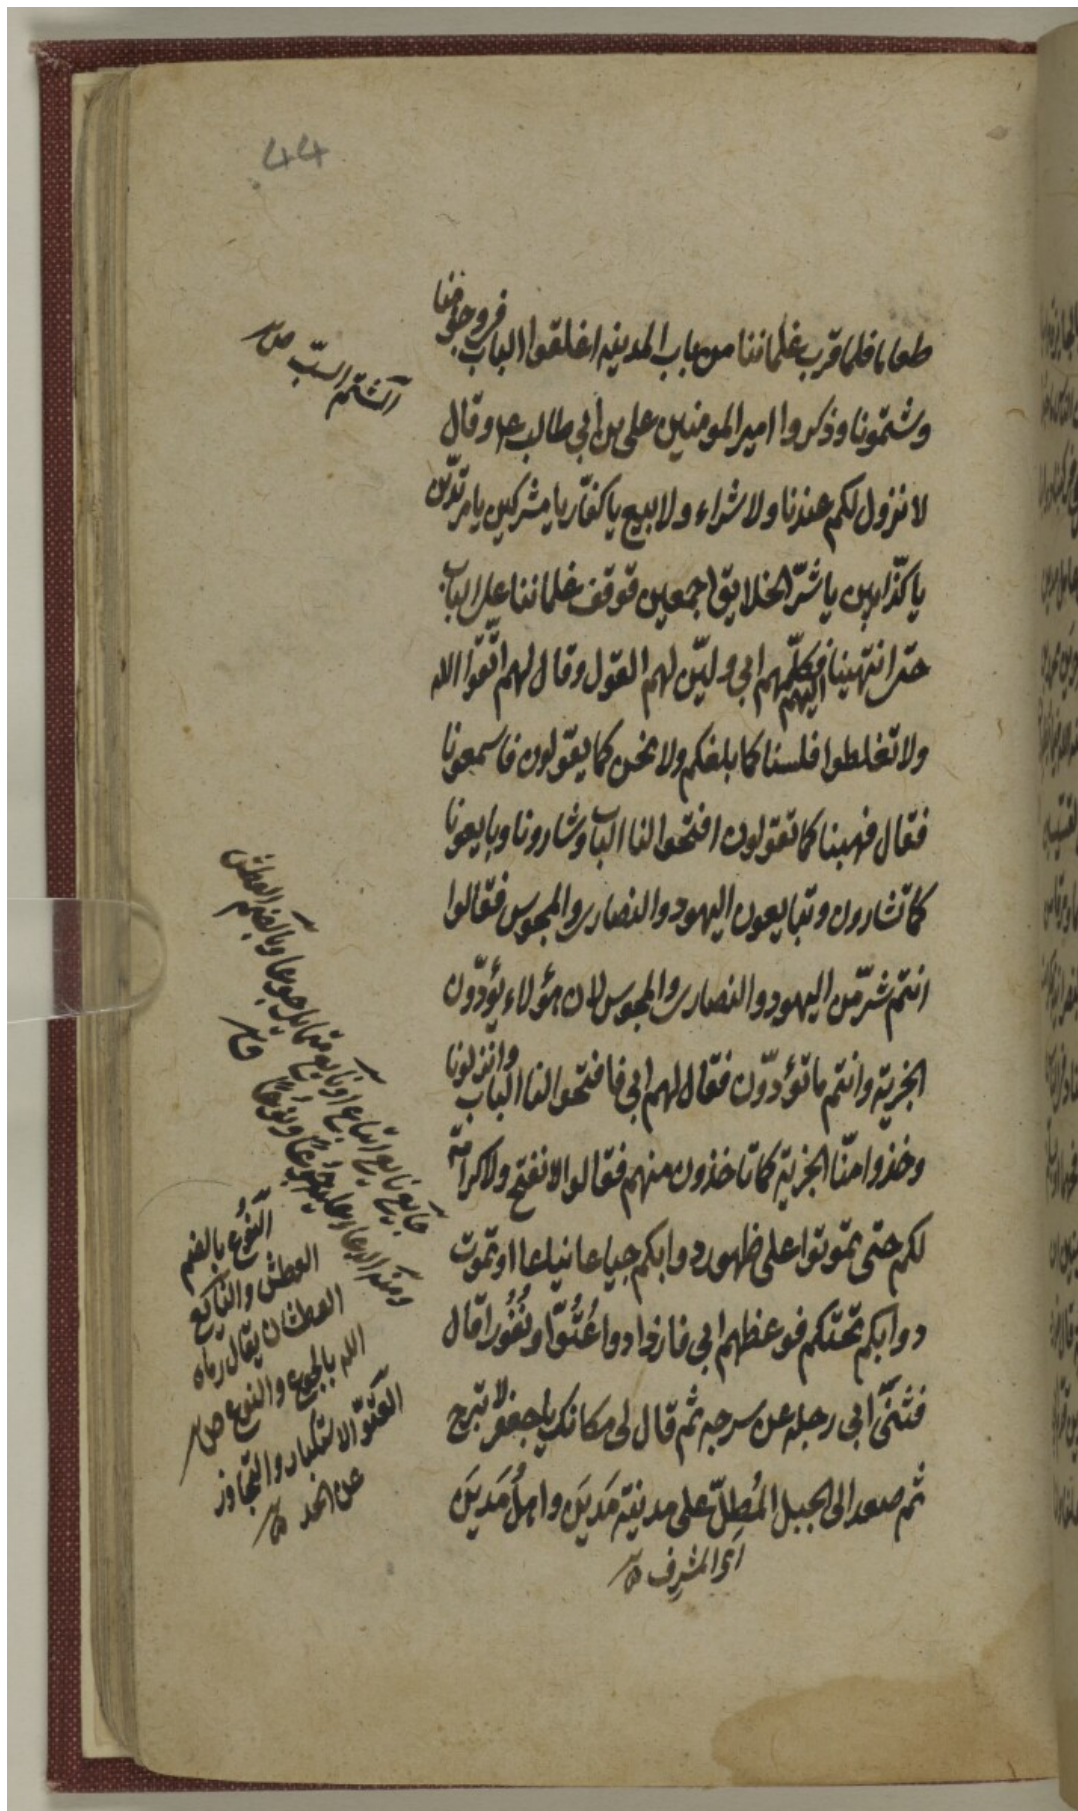 44
طعاما فلما قرب غلماننا من باب المدينه اغلقوا الباب فى وجوهنا
وشتمونا وذكروا امير المومنين على بن ابي طالب ع وقال
لا نزول لكم عندنا ولا شراء ولا بيع يا كفّار يا مشركين يا مرتدّين
يا كذّابين يا شرّ الخلايق اجمعين فوقف غلماننا على الباب
حتى انتهينا اليهم فكلّمهم ابي وليّن لهم القول وقال لهم اتّقوا الله
ولا تغلطوا فلسنا كما بلغكم ولا نحن كما يقولون فاسمعونا
فقال فهبنا كما تقولون افتحوا لنا الباب وشارونا وبايعونا
كما تشارون وتبايعون اليهود والنصارى والمجوس فقالوا
انتم شرّ من اليهود والنصارى والمجوس لان هؤلاء يؤدّون
الجزية وانتم ما تؤدّون فقال لهم ابي فافتحوا لنا الباب وانزلونا
وخذوا منّا الجزية كما تاخذون منهم فقالوا لا نفتح ولا كرامة
لكم حتى تموتوا على ظهور دوابكم جياعا نياعا او تموت
دوابكم تحتكم فوعظهم ابي فازدادوا عُتُوّا ونُفُورا قال
فثنّى ابي رجله عن سرجه ثم قال لى مكانك يا جعفر لا تبرح
ثم صعد الى الجبل المُطِلّ على مدينة مَديَن واهلُ مَديَن
اى المشرف
الشتم السبّ ص
جايع نايع اتباع او نايع متمايل جوعا وبالضم العطش
ومنه الدعاء عليه جُوعًا ونُوعًا ق
النُّوع بالضم
العطش والنايع
العطشان يقال رماه
الله بالجوع والنوع ص
العتوّ الاستكبار والتجاوز
عن الحد